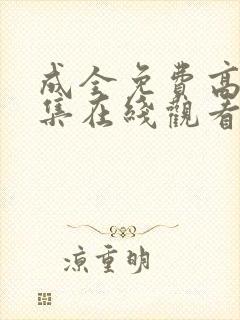 成全免費高
集在綫觀看
凉重明